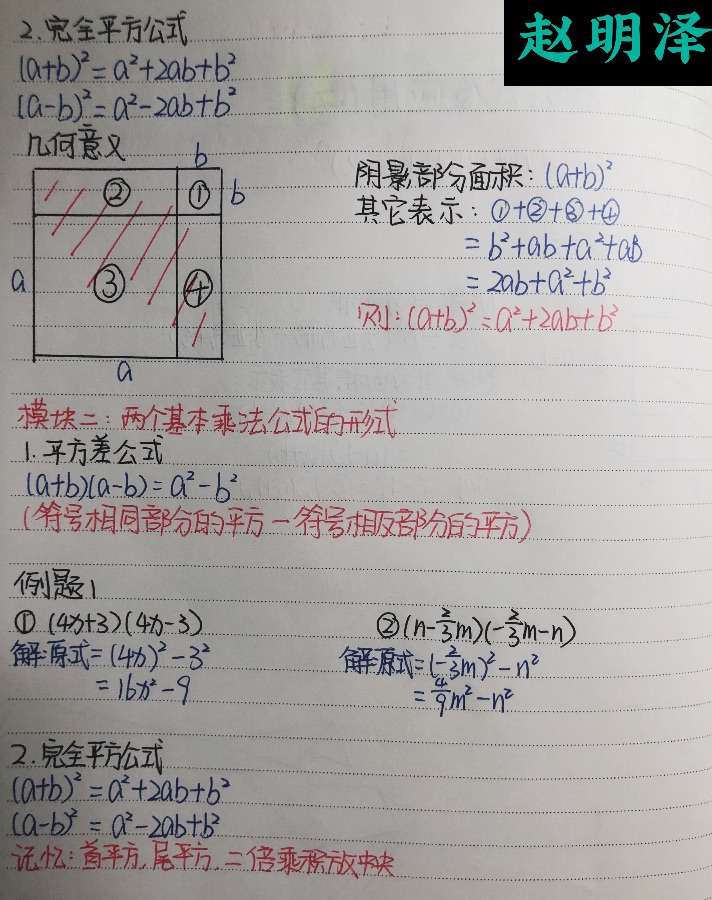 赵明泽
2.完全平方公式
(a+b)²=a²+2ab+b²
(a-b)²=a²-2ab+b²
几何意义
b
② ① b
a ③ ④
a
阴影部分面积:(a+b)²
其它表示:①+②+③+④
=b²+ab+a²+ab
=2ab+a²+b²
则:(a+b)²=a²+2ab+b²
模块二:两个基本乘法公式的形式
1.平方差公式
(a+b)(a-b)=a²-b²
(符号相同部分的平方-符号相反部分的平方)
例题1
①(4x+3)(4x-3)
解:原式=(4x)²-3²
=16x²-9
②(n-2/3m)(-2/3m-n)
解:原式=(-2/3m)²-n²
=4/9m²-n²
2.完全平方公式
(a+b)²=a²+2ab+b²
(a-b)²=a²-2ab+b²
记忆:首平方,尾平方,二倍乘积放中央